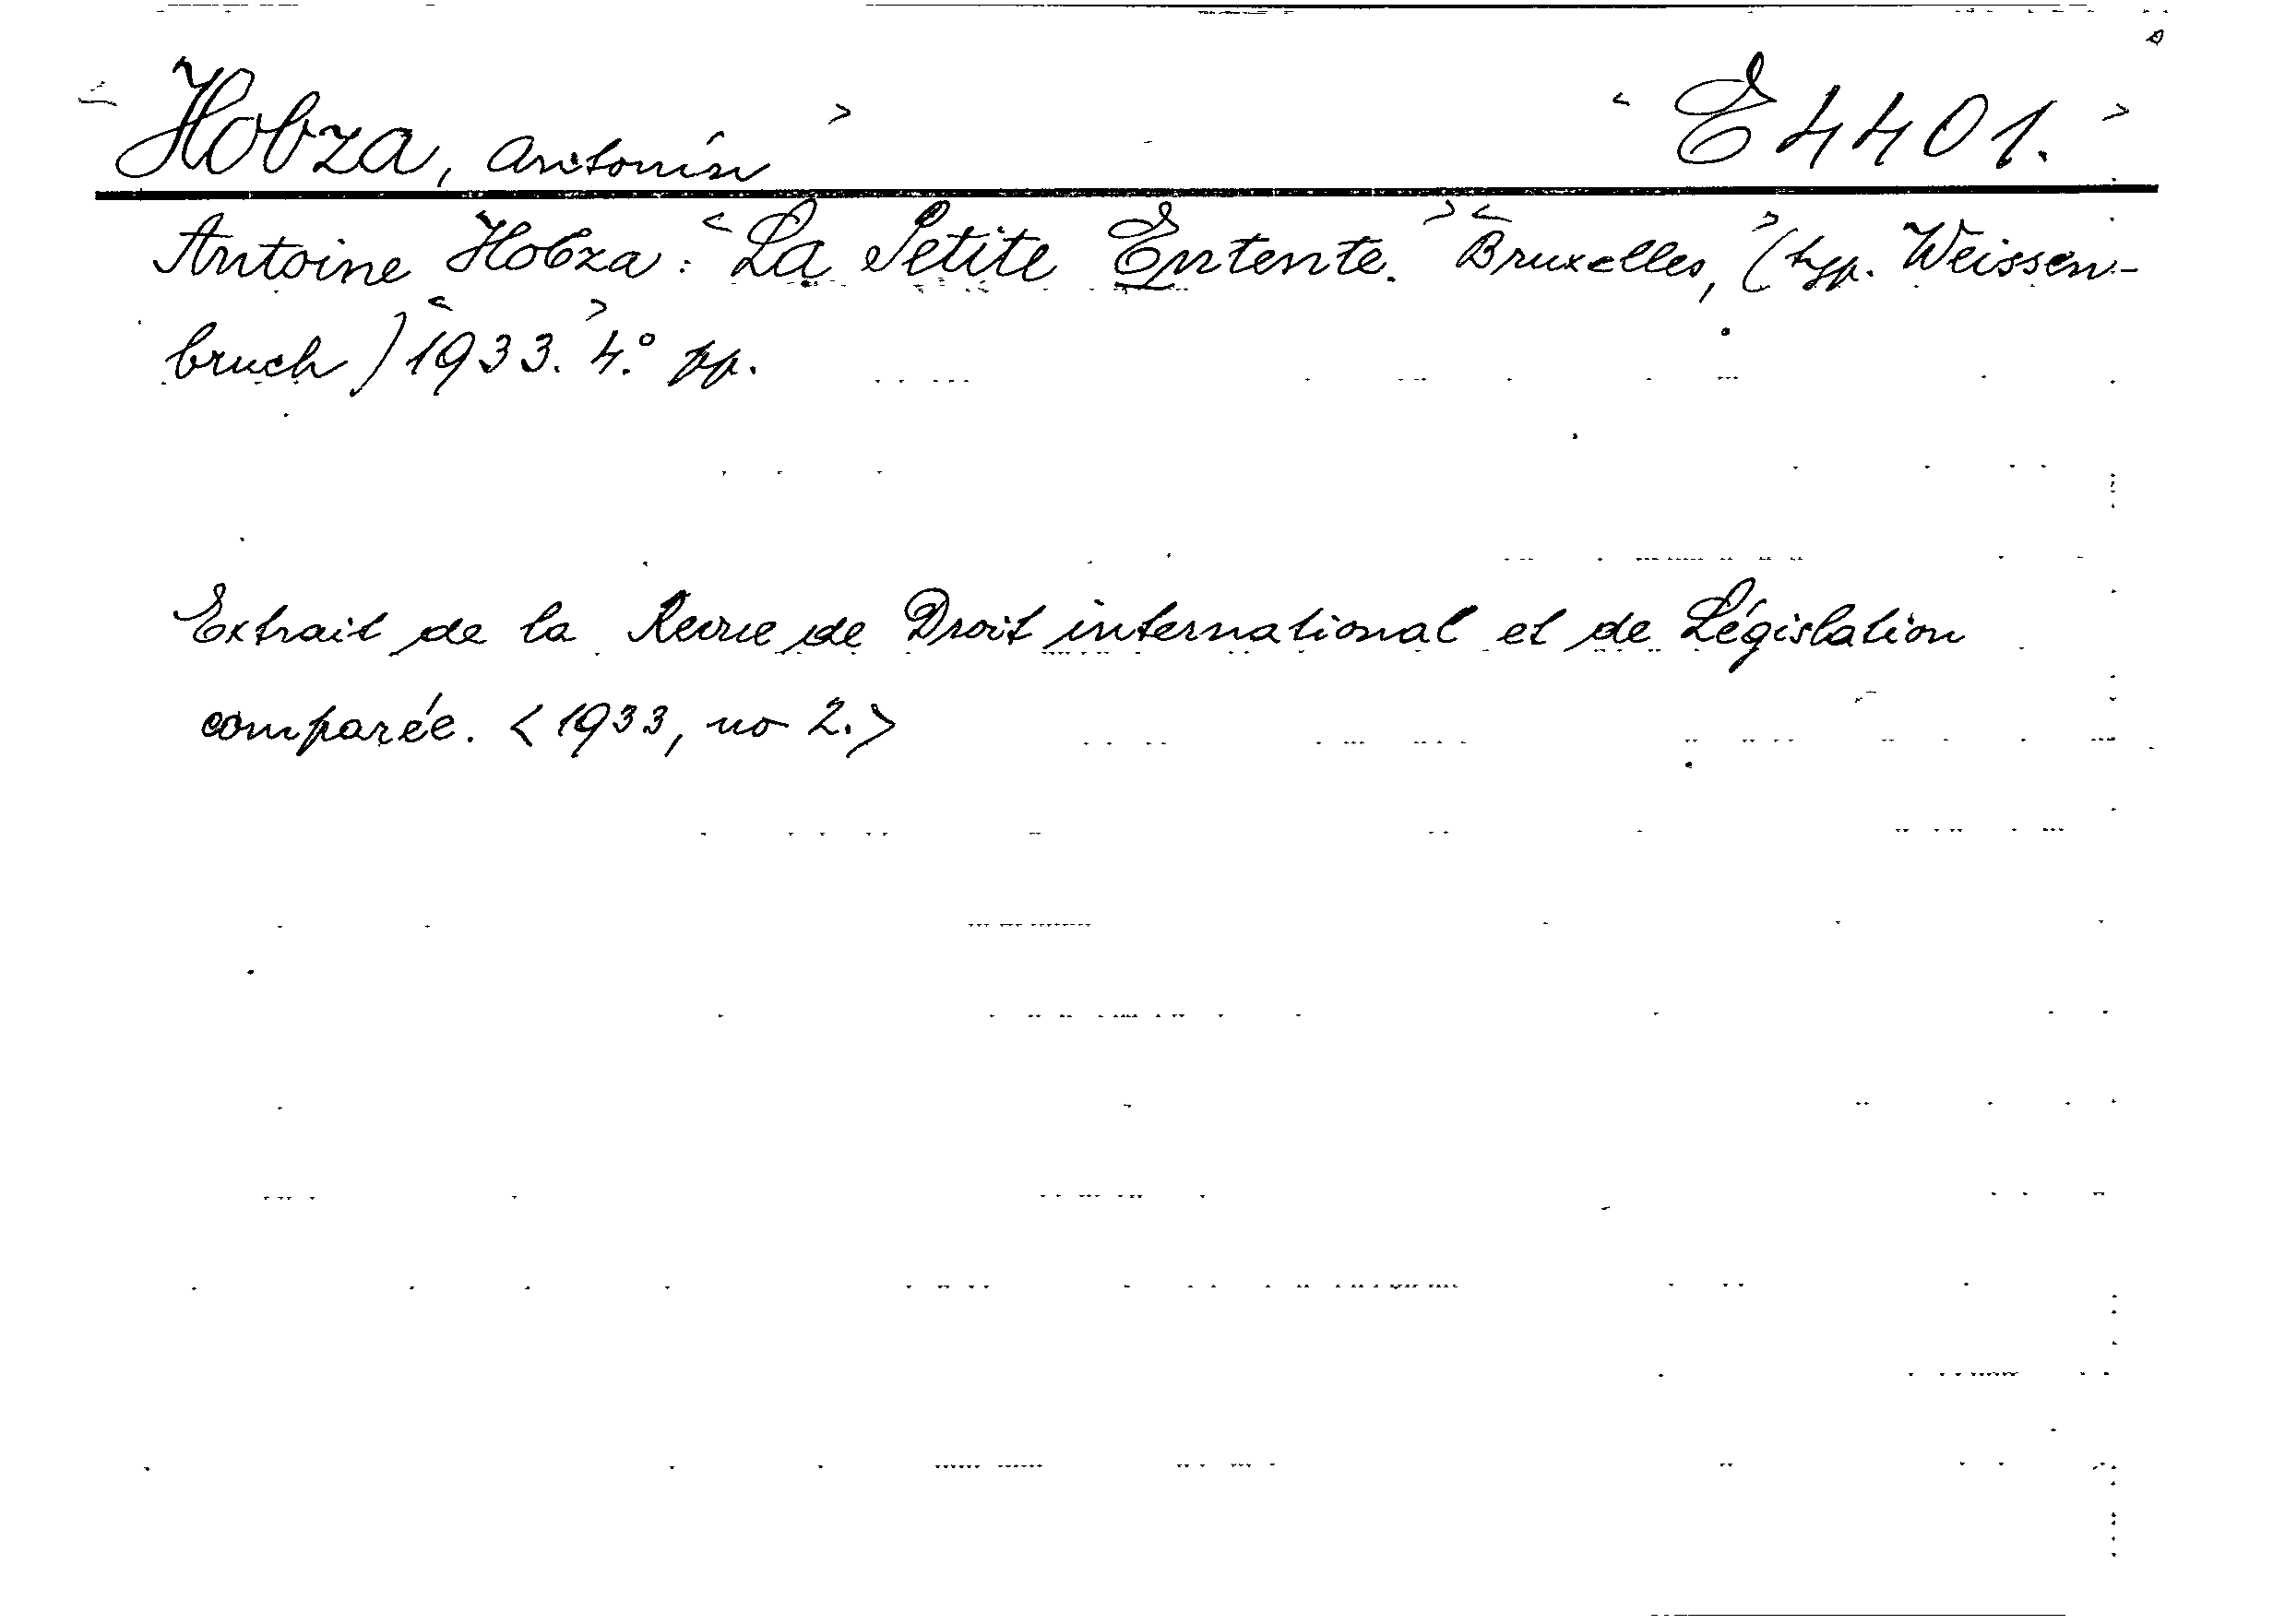 Hobza, Antonín E 4401.
Antoine Hobza: La Petite Entente. Bruxelles, (typ. Weissen-
bruch) 1933. 4.° pp.
Extrait de la Revue de Droit international et de Législation
comparée. <1933, no 2.>